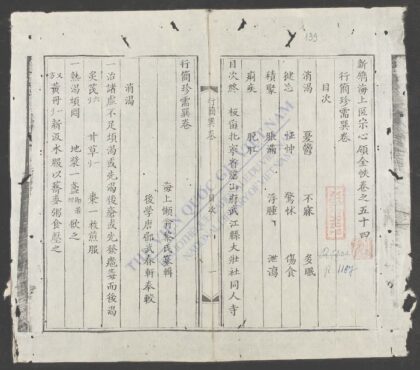 新鐫海上医宗心領全帙卷之五十四
行簡珍需巽卷
目次
消渴 憂鬱 不寐 多眠
健忘 怔忡 驚悸 傷食
積聚 脹滿 浮腫 泄瀉
痢疾 脫肛
目次終 板留北寧省慈山府武江縣大壯社同人寺
行簡巽卷 目次 一
行簡珍需巽卷
海上懶翁黎氏纂輯
後學唐郿武春軒奉較
消渴
一治諸虛不足煩渴或先渴後瘡或先發癰毒而後渴
炙芪 甘草 棗一枚煎服
一熱渴煩悶 地漿一盞 飲之
又 黃丹 新汲水服以蕎麥粥食壓之
139
THƯ VIỆN QUỐC GIA VIỆT NAM
NATIONAL LIBRARY OF VIETNAM
R.1187